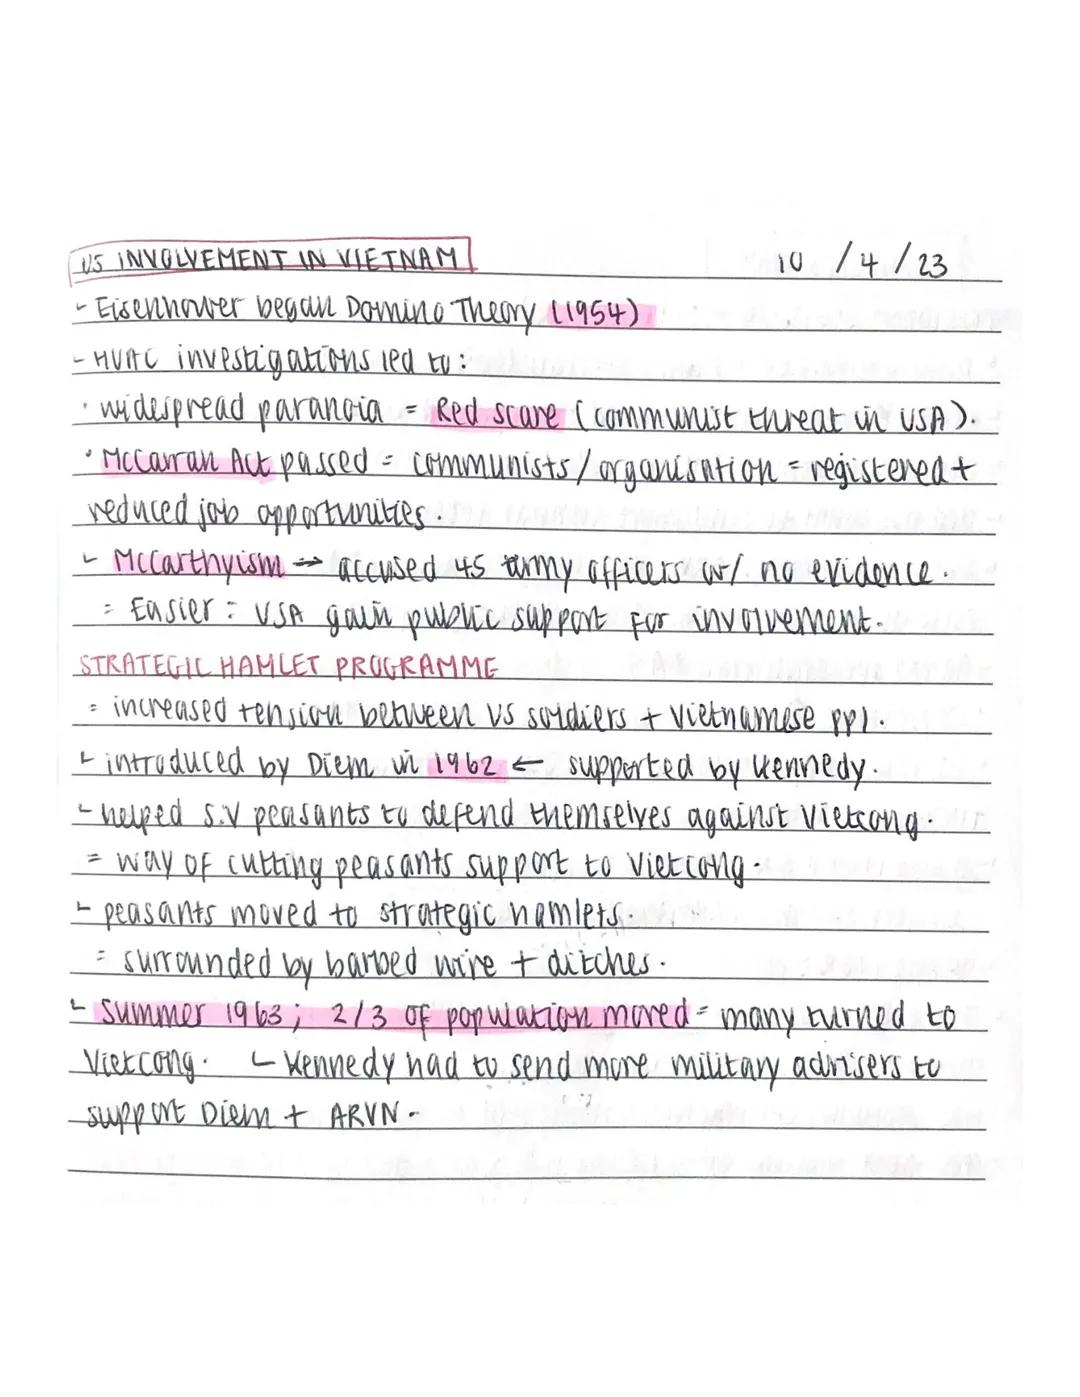 US INVOLVEMENT IN VIETNAM 10/4/23
- Eisenhower began Domino Theory (1954)
- HUAC investigations led to:
· widespread paranoia = Red scare (communist threat in USA).
· McCarran Act passed = communists/organisation = registered +
reduced job opportunities.
- McCarthyism → accused 45 army officers w/ no evidence.
= Easier = USA gain public support for involvement.
STRATEGIC HAMLET PROGRAMME
= increased tension between US soldiers + Vietnamese ppl.
- introduced by Diem in 1962 ← supported by Kennedy.
- helped S.V peasants to defend themselves against Vietcong.
= way of cutting peasants support to Vietcong.
- peasants moved to strategic hamlets.
= surrounded by barbed wire + ditches.
- Summer 1963; 2/3 of population moved = many turned to
Vietcong. - Kennedy had to send more military advisers to
support Diem + ARVN.